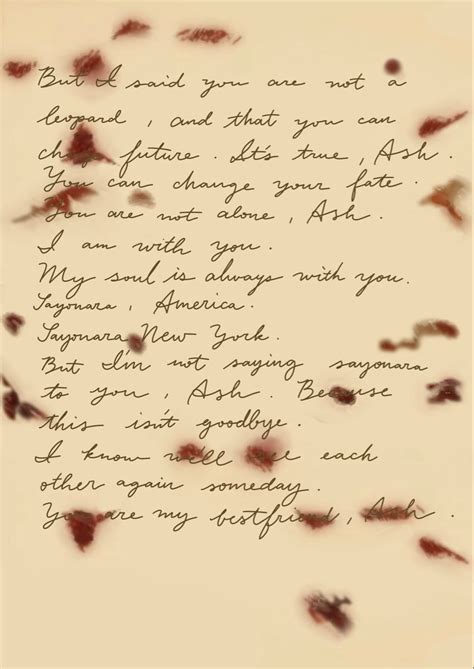 But I said you are not a
leopard, and that you can
change future. It's true, Ash.
You can change your fate.
You are not alone, Ash.
I am with you.
My soul is always with you.
Sayonara, America.
Sayonara New York.
But I'm not saying sayonara
to you, Ash. Because
this isn't goodbye.
I know we'll see each
other again someday.
You are my bestfriend, Ash.